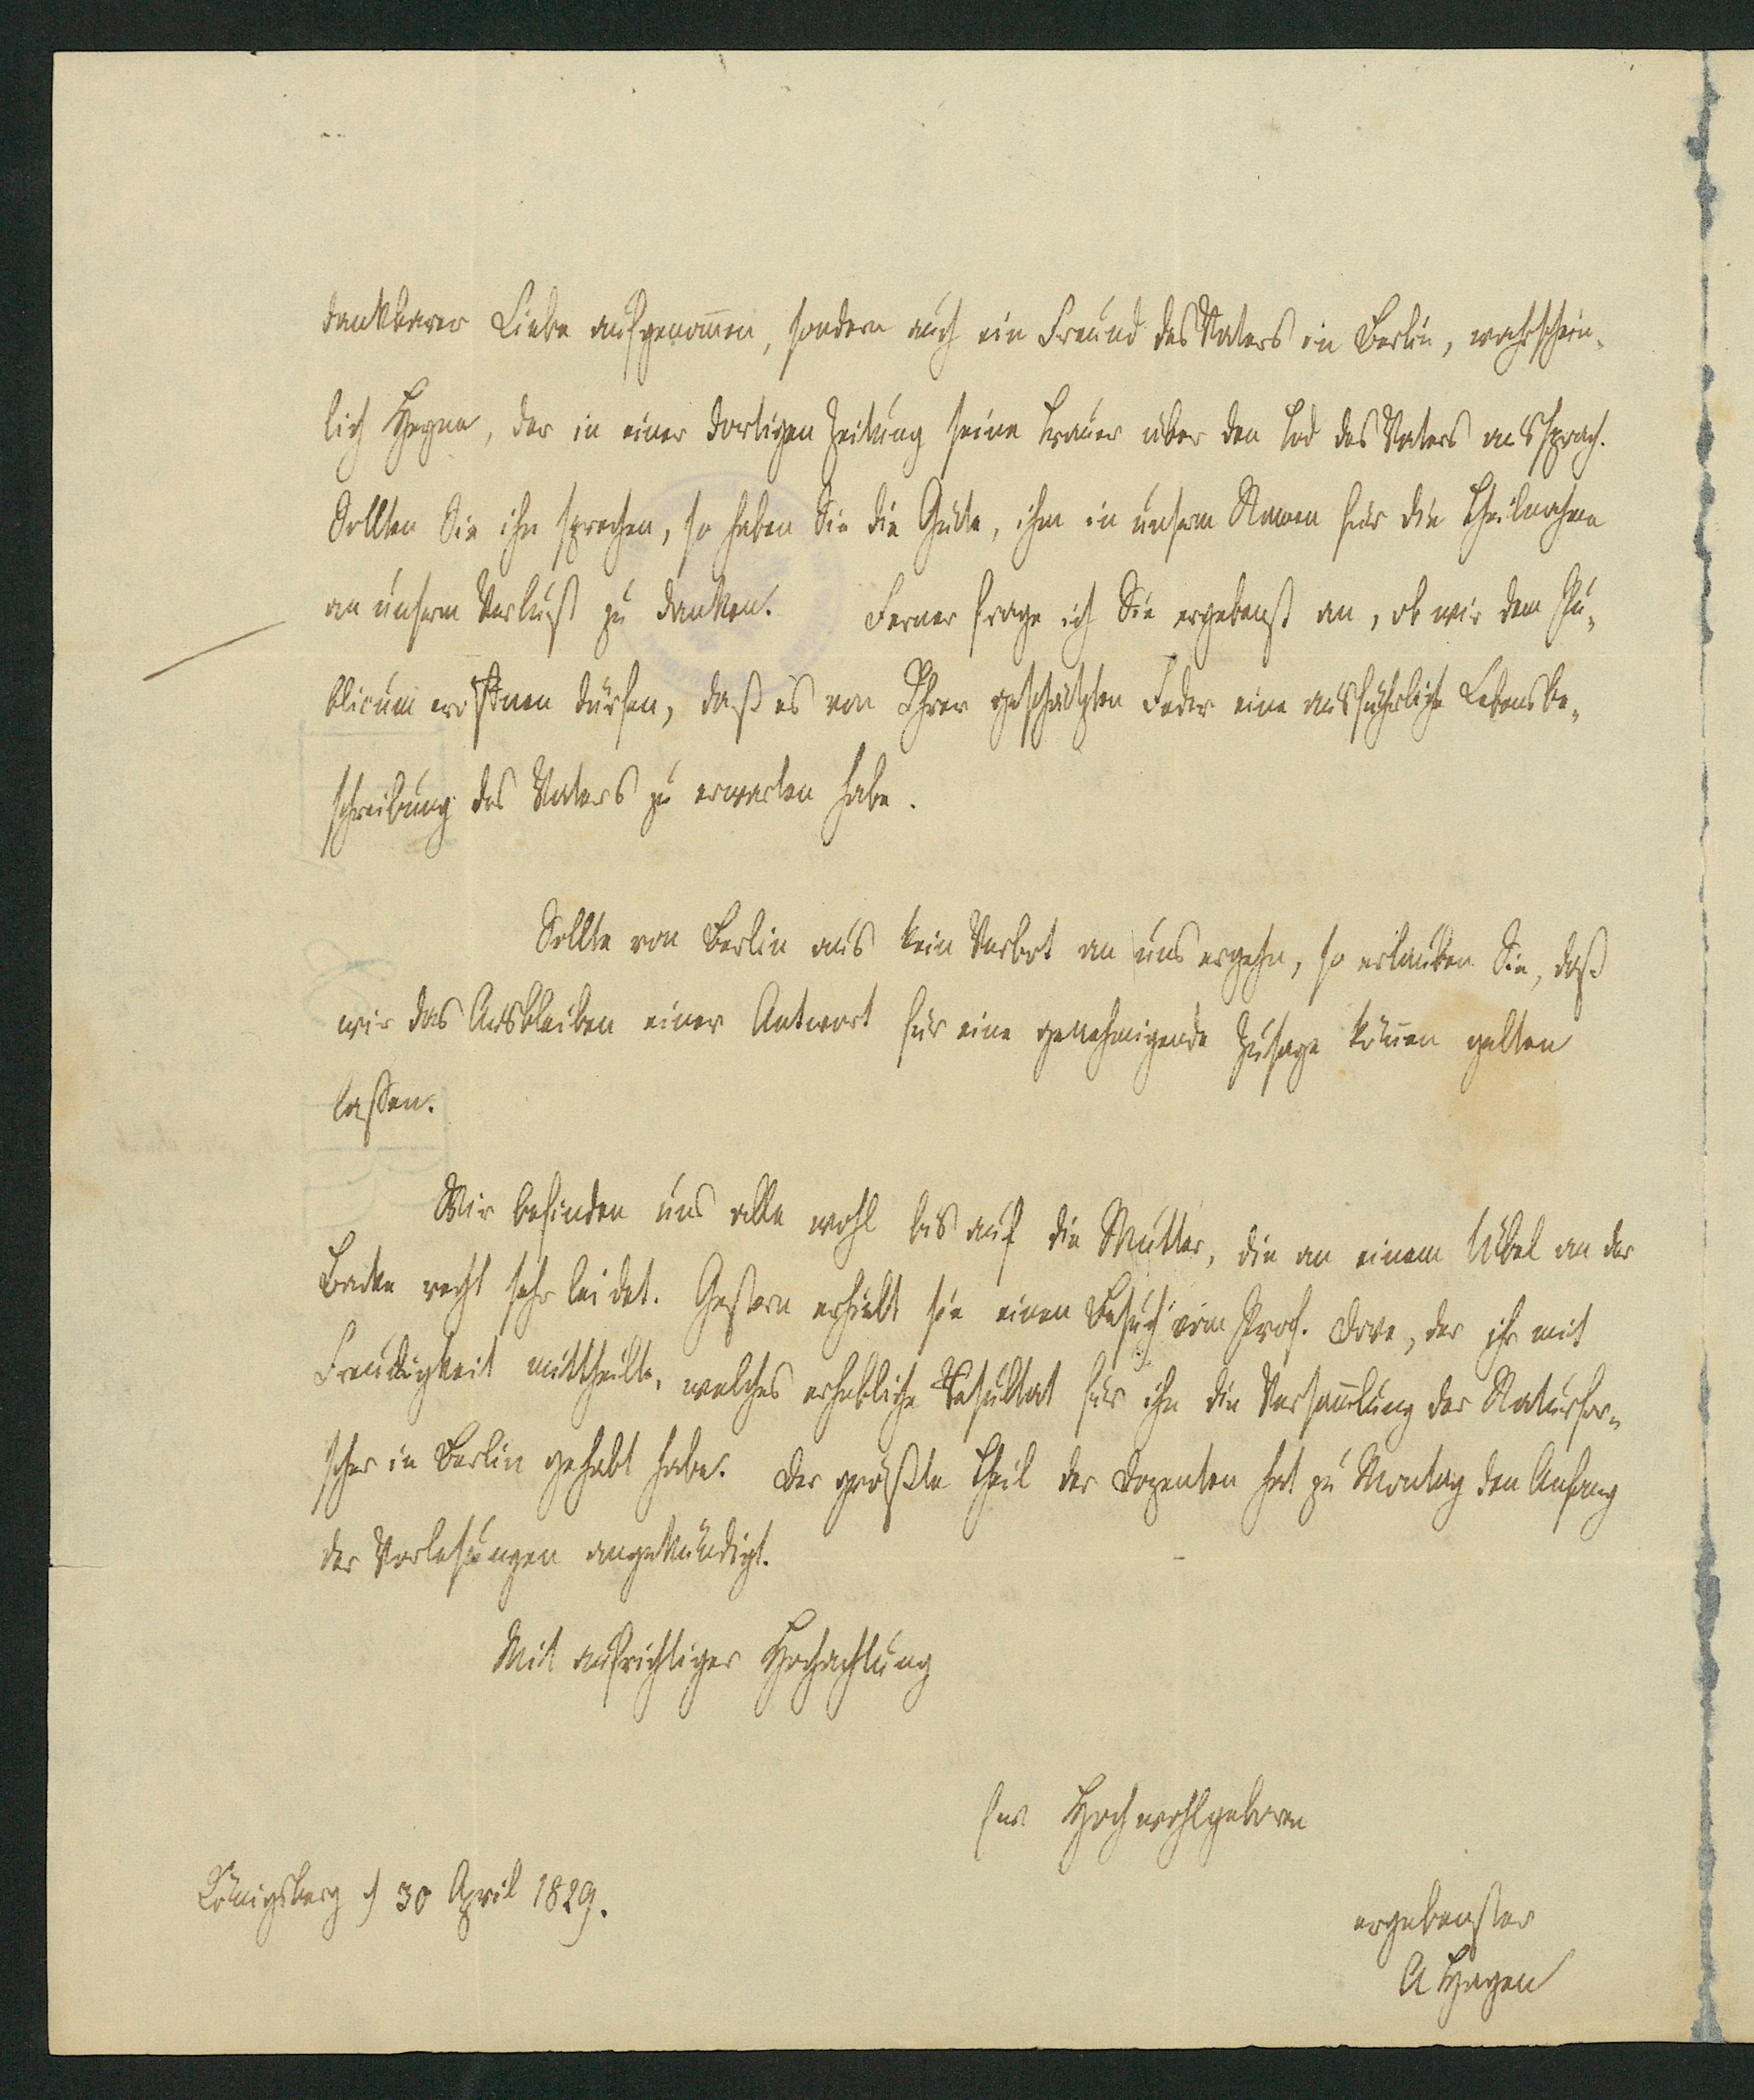 dankbarer Liebe aufgenom̅en, sondern auch ein Freund des Vaters in Berlin, wahrschein-
lich Heyne, der in einer dortigen Zeitung seine Trauer über den Tod des Vaters aussprach.
Sollten Sie ihn sprechen, so haben Sie die Güte, ihm in unserm Namen für die Theilnahme
an unserm Verlust zu danken. Ferner frage ich Sie ergebenst an, ob wir dem Pu-
blicum eröffnen dürfen, daß es von Ihrer geschätzten Feder eine ausführliche Lebensbe-
schreibung des Vaters zu erwarten habe.
Sollte von Berlin aus kein Verbot an uns ergehn, so erlauben Sie, daß
wir das Ausbleiben einer Antwort für eine genehmigende Zusage kön̅en gelten
lassen.
Wir befinden uns alle wohl bis auf die Mutter, die an einem Uebel an der
Backe recht sehr leidet. Gestern erhielt sie einen Besuch vom Prof. Dove, der ihr mit
Freudigkeit mittheilte, welches erhebliche Resultat für ihn die Versam̅lung der Naturfor-
scher in Berlin gehabt habe. Der größte Theil der Dozenten hat zu Montag den Anfang
der Vorlesungen angekündigt.
Mit aufrichtiger Hochachtung
Ew Hochwohlgeboren
Königsberg d 30 April 1829.
ergebenster
A Hagen